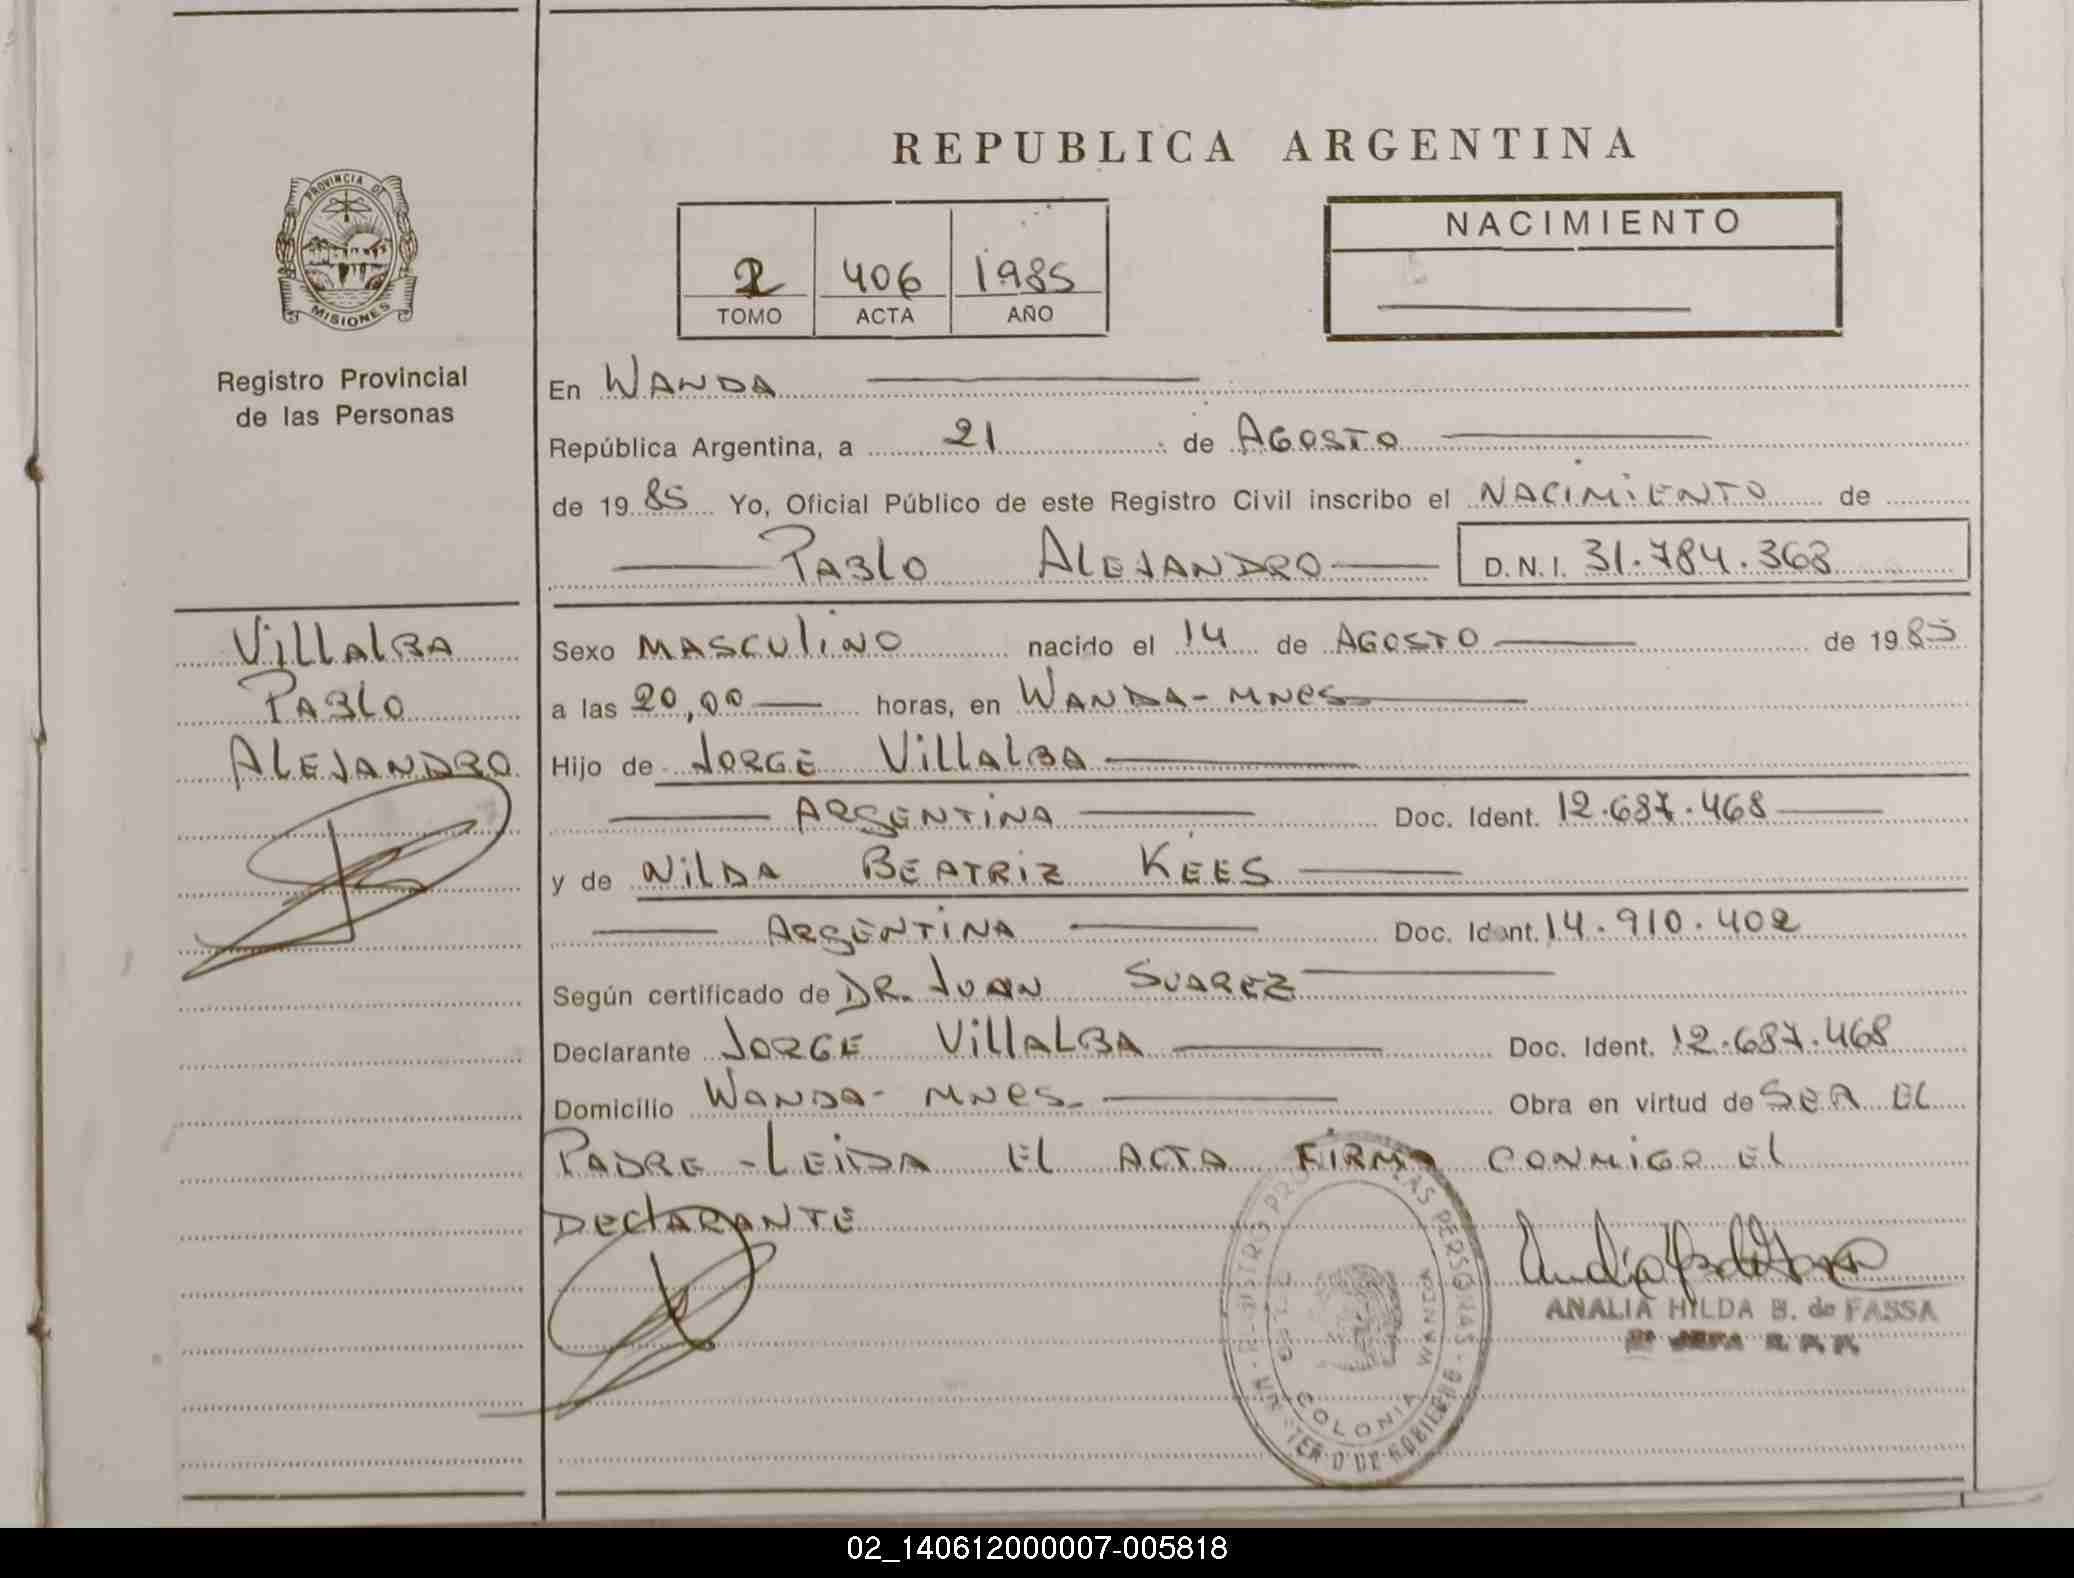 REPUBLICA ARGENTINA
PROVINCIA DE
MISIONES
Registro Provincial
de las Personas
406 1985
TOMO ACTA AÑO
NACIMIENTO
En WANDA
República Argentina, a 21 de AGOSTO
de 1985 Yo, Oficial Público de este Registro Civil inscribo el NACIMIENTO de
PABLO ALEJANDRO D.N.I. 31.784.363
VILLALBA
PABLO
ALEJANDRO
Sexo MASCULINO nacido el 14 de AGOSTO de 1985
a las 20,00 horas, en WANDA-MNES
Hijo de JORGE VILLALBA
ARGENTINA Doc. Ident. 12.687.468
y de NILDA BEATRIZ KEES
ARGENTINA Doc. Ident. 14.910.402
Según certificado de DR. JUAN SUAREZ
Declarante JORGE VILLALBA Doc. Ident. 12.687.468
Domicilio WANDA- MNES- Obra en virtud de SER EL
PADRE -LEIDA EL ACTA FIRMA CONMIGO EL
DECLARANTE
ANALIA HILDA B. de FASSA
COLONIA WANDA
02_140612000007-005818